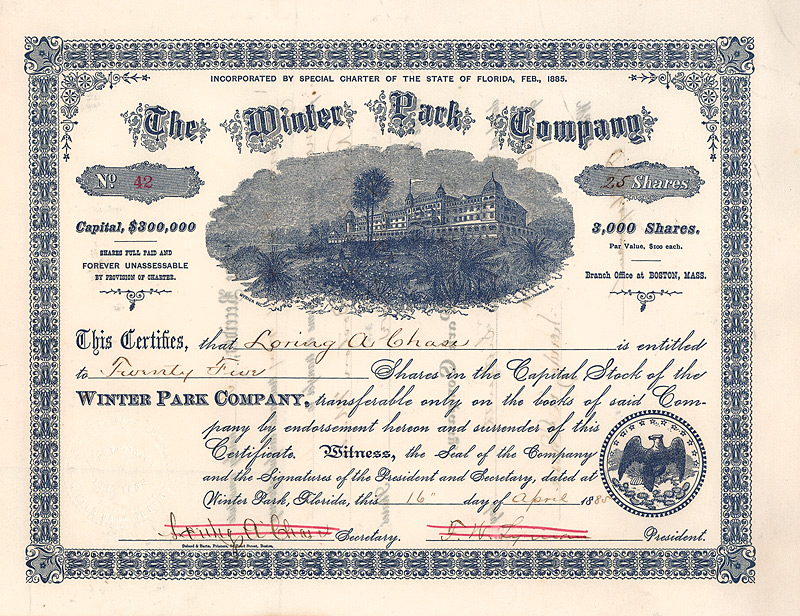 INCORPORATED BY SPECIAL CHARTER OF THE STATE OF FLORIDA, FEB., 1885.
The Winter Park Company
No 42
25 Shares
Capital, $300,000
3,000 Shares.
SHARES FULL PAID AND
FOREVER UNASSESSABLE
BY PROVISION OF CHARTER.
Par Value, $100 each.
Branch Office at BOSTON, MASS.
This Certifies, that Loring A. Chase is entitled
to Twenty Five Shares in the Capital Stock of the
WINTER PARK COMPANY, transferable only on the books of said Com-
pany by endorsement hereon and surrender of this
Certificate. Witness, the Seal of the Company
and the Signatures of the President and Secretary, dated at
Winter Park, Florida, this 16" day of April 188
Loring A. Chase Secretary. F. W. Lyman President.